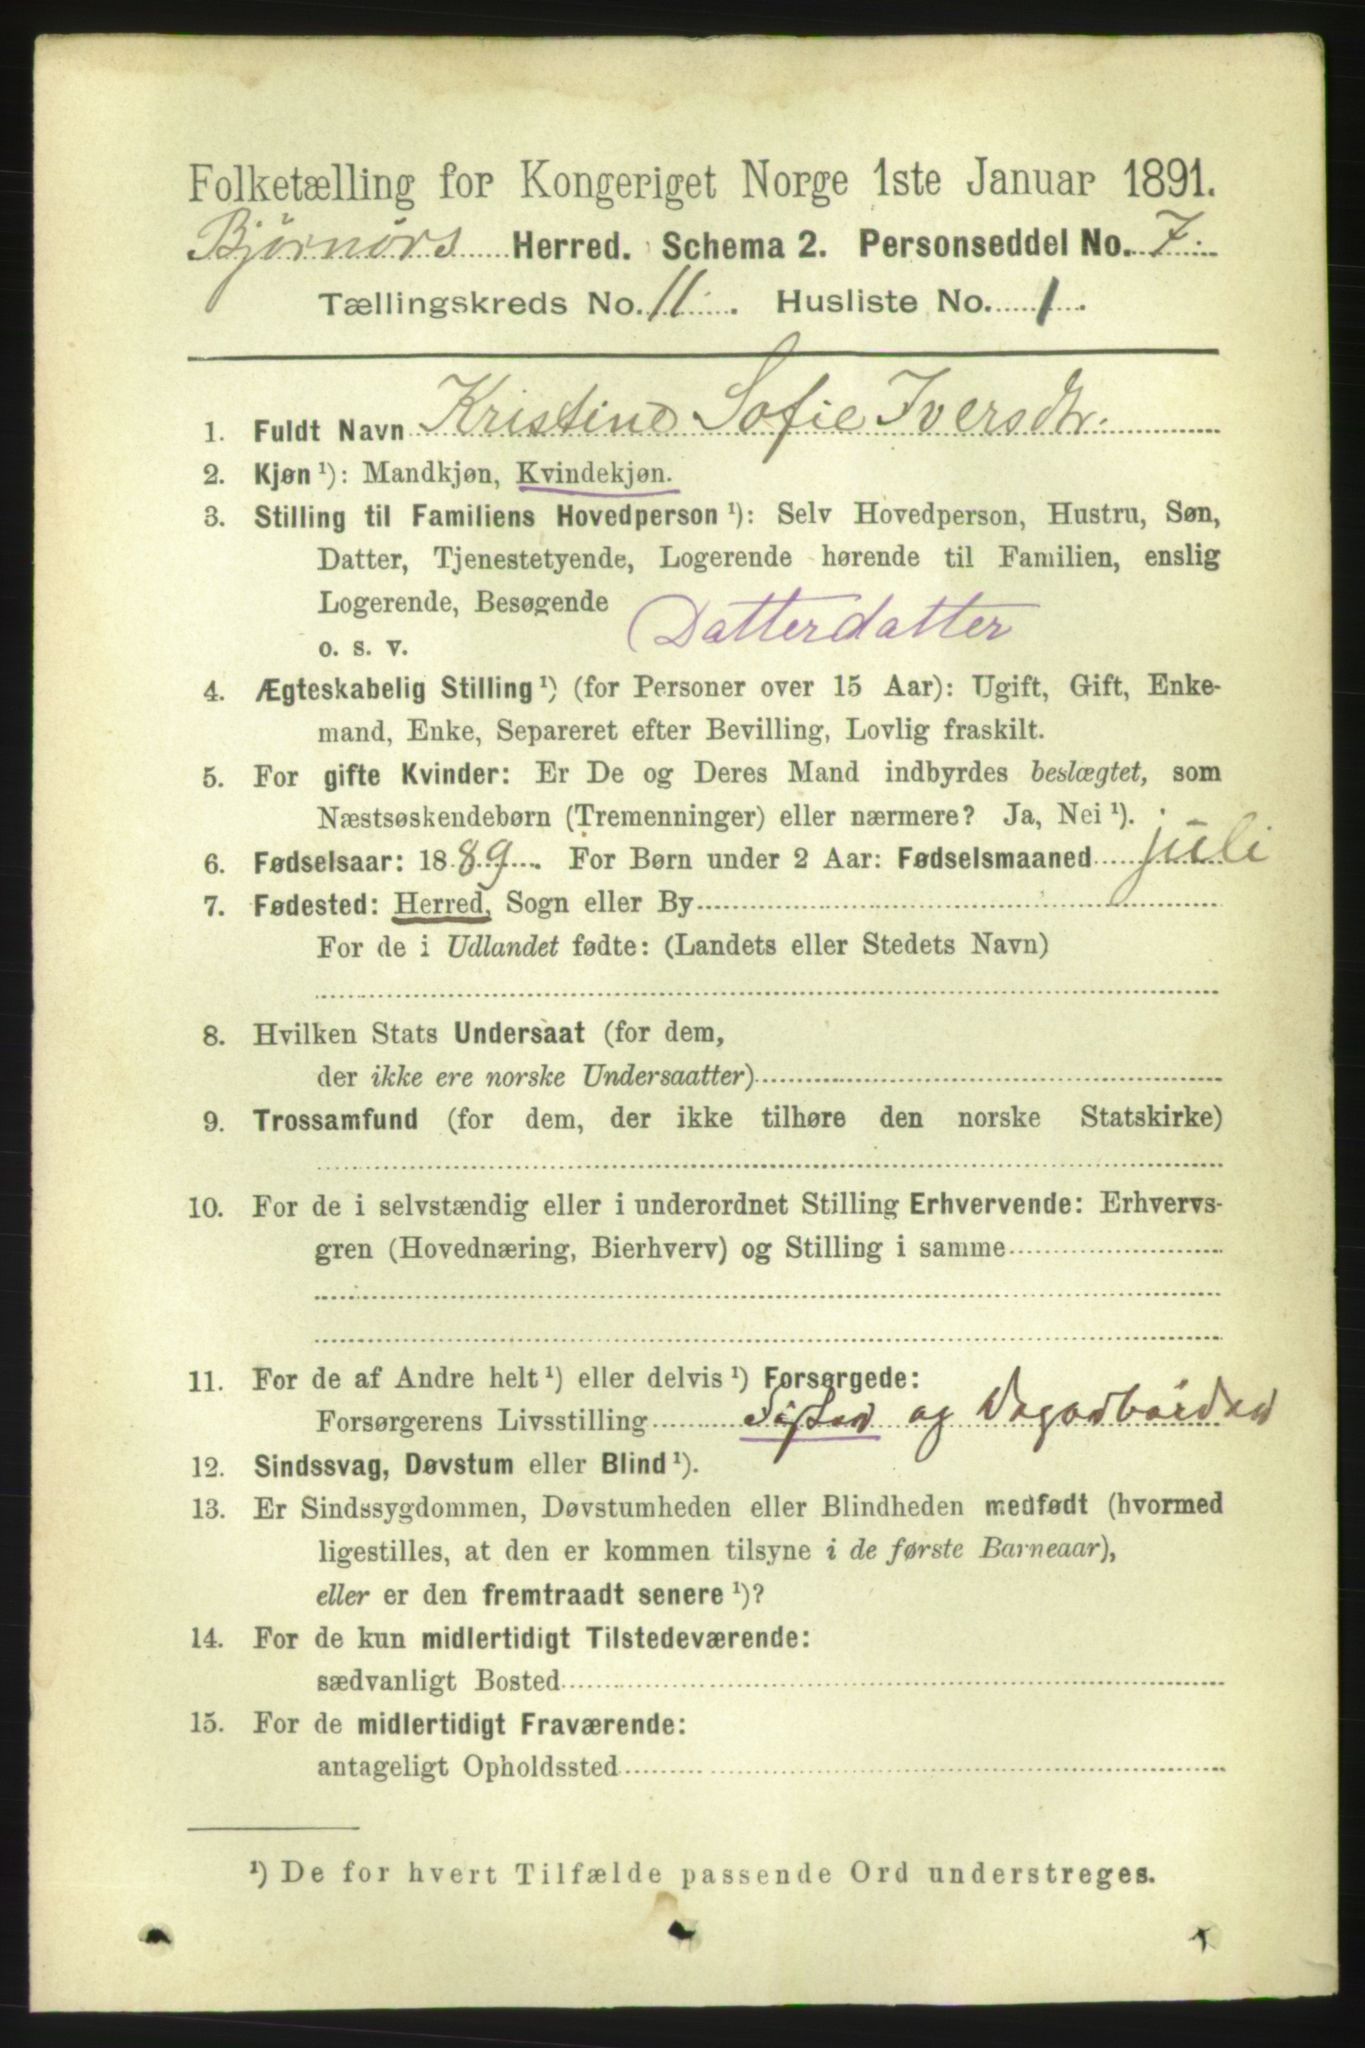 Folketælling for Kongeriget Norge 1ste Januar 1891.
Bjørnørs Herred. Schema 2. Personseddel No. 7
Tællingskreds No. 11. Husliste No. 1.
1. Fuldt Navn Kristine Sofie Iversdtr.
2. Kjøn ¹): Mandkjøn, Kvindekjøn.
3. Stilling til Familiens Hovedperson ¹): Selv Hovedperson, Hustru, Søn,
Datter, Tjenestetyende, Logerende hørende til Familien, enslig
Logerende, Besøgende
o. s. v. Datterdatter
4. Ægteskabelig Stilling ¹) (for Personer over 15 Aar): Ugift, Gift, Enke-
mand, Enke, Separeret efter Bevilling, Lovlig fraskilt.
5. For gifte Kvinder: Er De og Deres Mand indbyrdes beslægtet, som
Næstsøskendebørn (Tremenninger) eller nærmere? Ja, Nei ¹).
6. Fødselsaar: 1889. For Børn under 2 Aar: Fødselsmaaned juli
7. Fødested: Herred, Sogn eller By
For de i Udlandet fødte: (Landets eller Stedets Navn)
8. Hvilken Stats Undersaat (for dem,
der ikke ere norske Undersaatter)
9. Trossamfund (for dem, der ikke tilhøre den norske Statskirke)
10. For de i selvstændig eller i underordnet Stilling Erhvervende: Erhvervs-
gren (Hovednæring, Bierhverv) og Stilling i samme
11. For de af Andre helt ¹) eller delvis ¹) Forsørgede:
Forsørgerens Livsstilling Fisker og Dagarbeider
12. Sindssvag, Døvstum eller Blind ¹).
13. Er Sindssygdommen, Døvstumheden eller Blindheden medfødt (hvormed
ligestilles, at den er kommen tilsyne i de første Barneaar),
eller er den fremtraadt senere ¹)?
14. For de kun midlertidigt Tilstedeværende:
sædvanligt Bosted
15. For de midlertidigt Fraværende:
antageligt Opholdssted
¹) De for hvert Tilfælde passende Ord understreges.